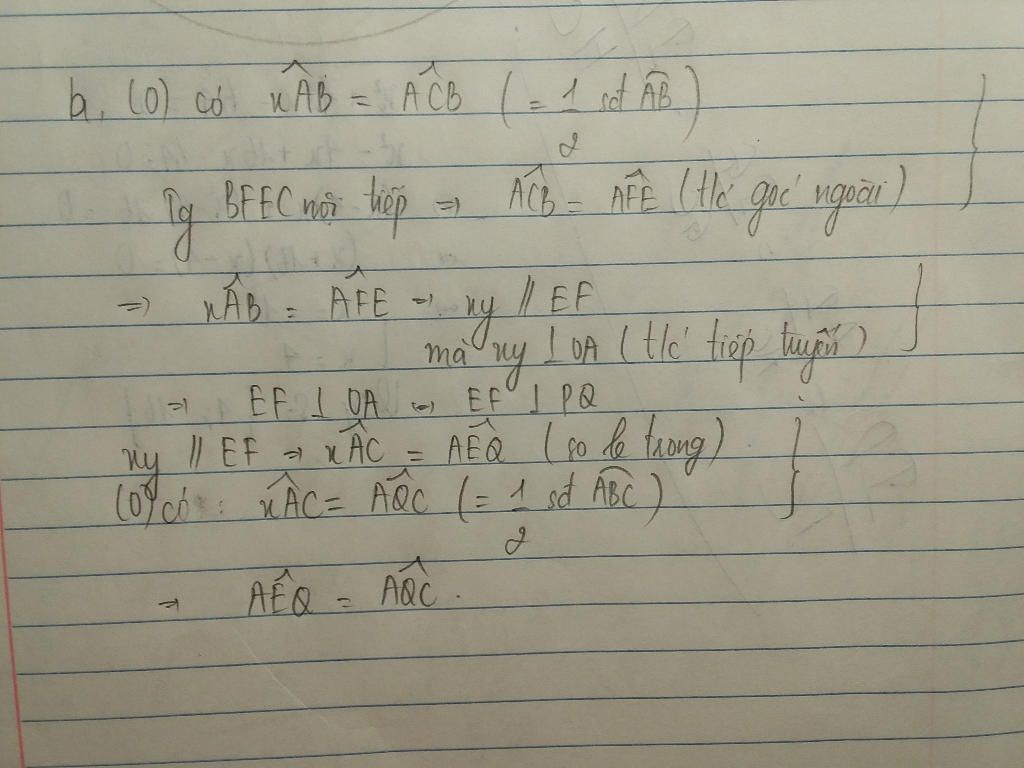 b, (O) có xÂB = AĈB ( = 1/2 sđ AB⌒ )
Tg BFEC nội tiếp ⇒ AĈB = AF̂E (t/c góc ngoài)
⇒ xÂB = AF̂E ⇒ xy // EF
mà xy ⊥ OA ( t/c tiếp tuyến )
⇒ EF ⊥ OA ⇒ EF ⊥ PQ
xy // EF ⇒ xÂC = AÊQ (so le trong)
(O) có : xÂC = AQ̂C ( = 1/2 sđ ABC⌒ )
⇒ AÊQ = AQ̂C .